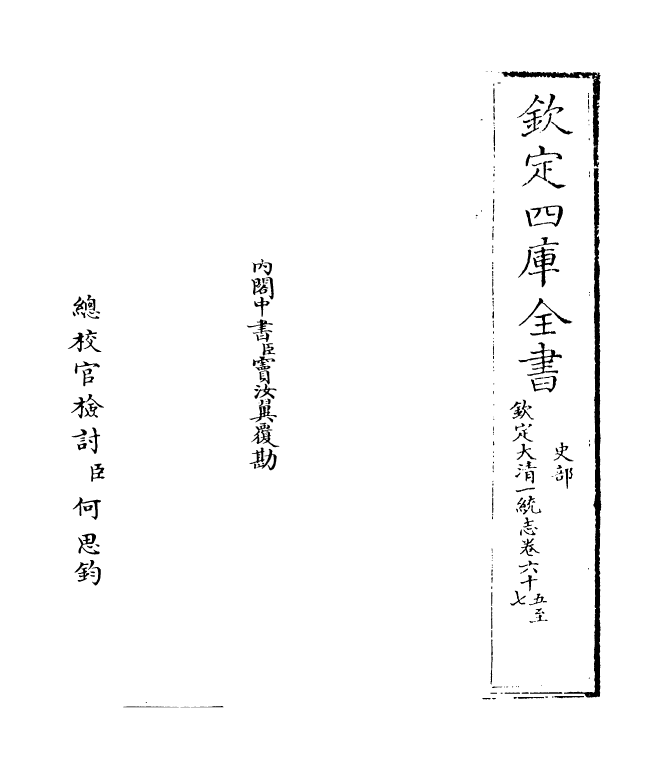 欽定四庫全書
史部
欽定大清一統志卷六十五至七
內閣中書臣竇汝翼覆勘
總校官檢討臣何思鈞